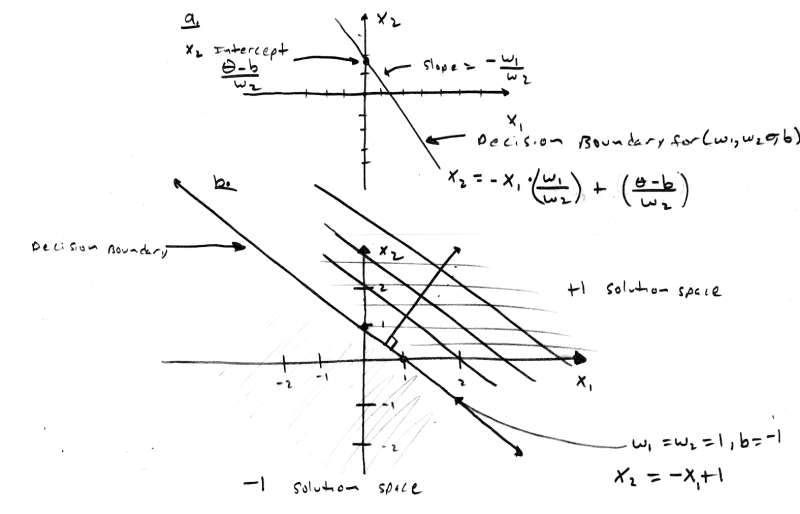 a.
x₂
x₂ Intercept
θ-b
w₂
Slope = - w₁
w₂
x₁
Decision Boundary for (w₁, w₂, θ, b)
x₂ = -x₁ · (w₁/w₂) + (θ-b/w₂)
b.
Decision Boundary
x₂
2
1
+1 solution space
-2 -1 1 2
x₁
-1
-2
w₁ = w₂ = 1, b = -1
x₂ = -x₁ + 1
-1 solution space